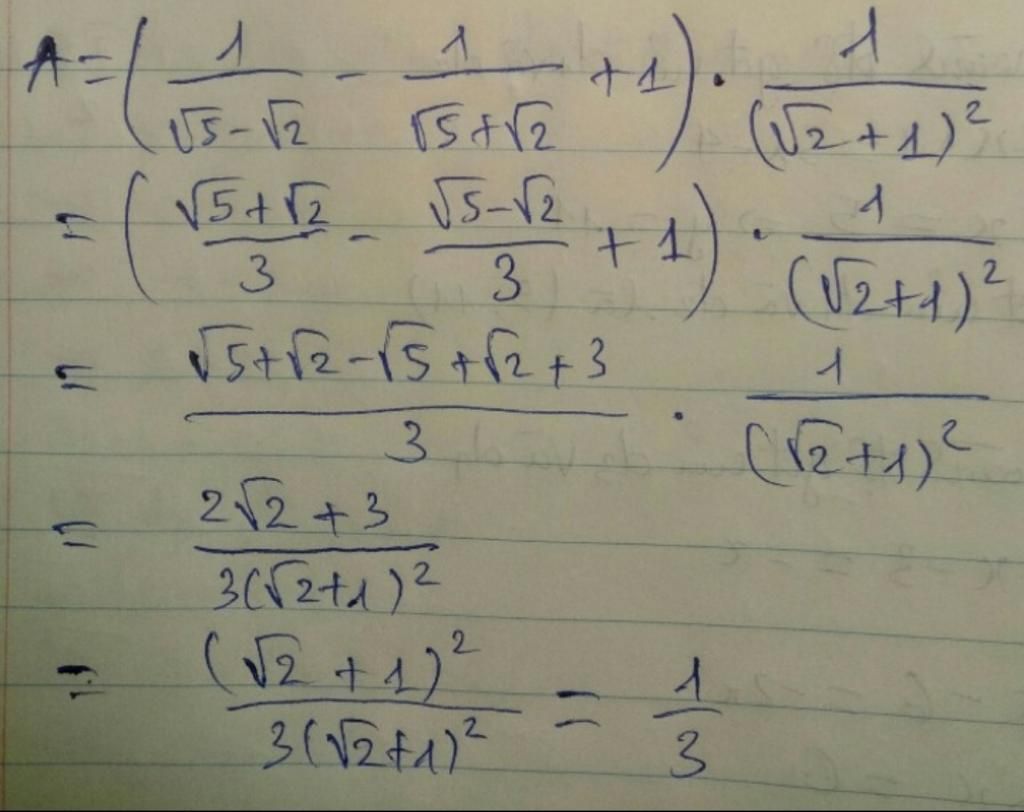 A = (1/(√5-√2) - 1/(√5+√2) + 1) · 1/(√2+1)²
= ((√5+√2)/3 - (√5-√2)/3 + 1) · 1/(√2+1)²
= (√5+√2-√5+√2+3)/3 · 1/(√2+1)²
= (2√2+3)/(3(√2+1)²)
= (√2+1)²/(3(√2+1)²) = 1/3